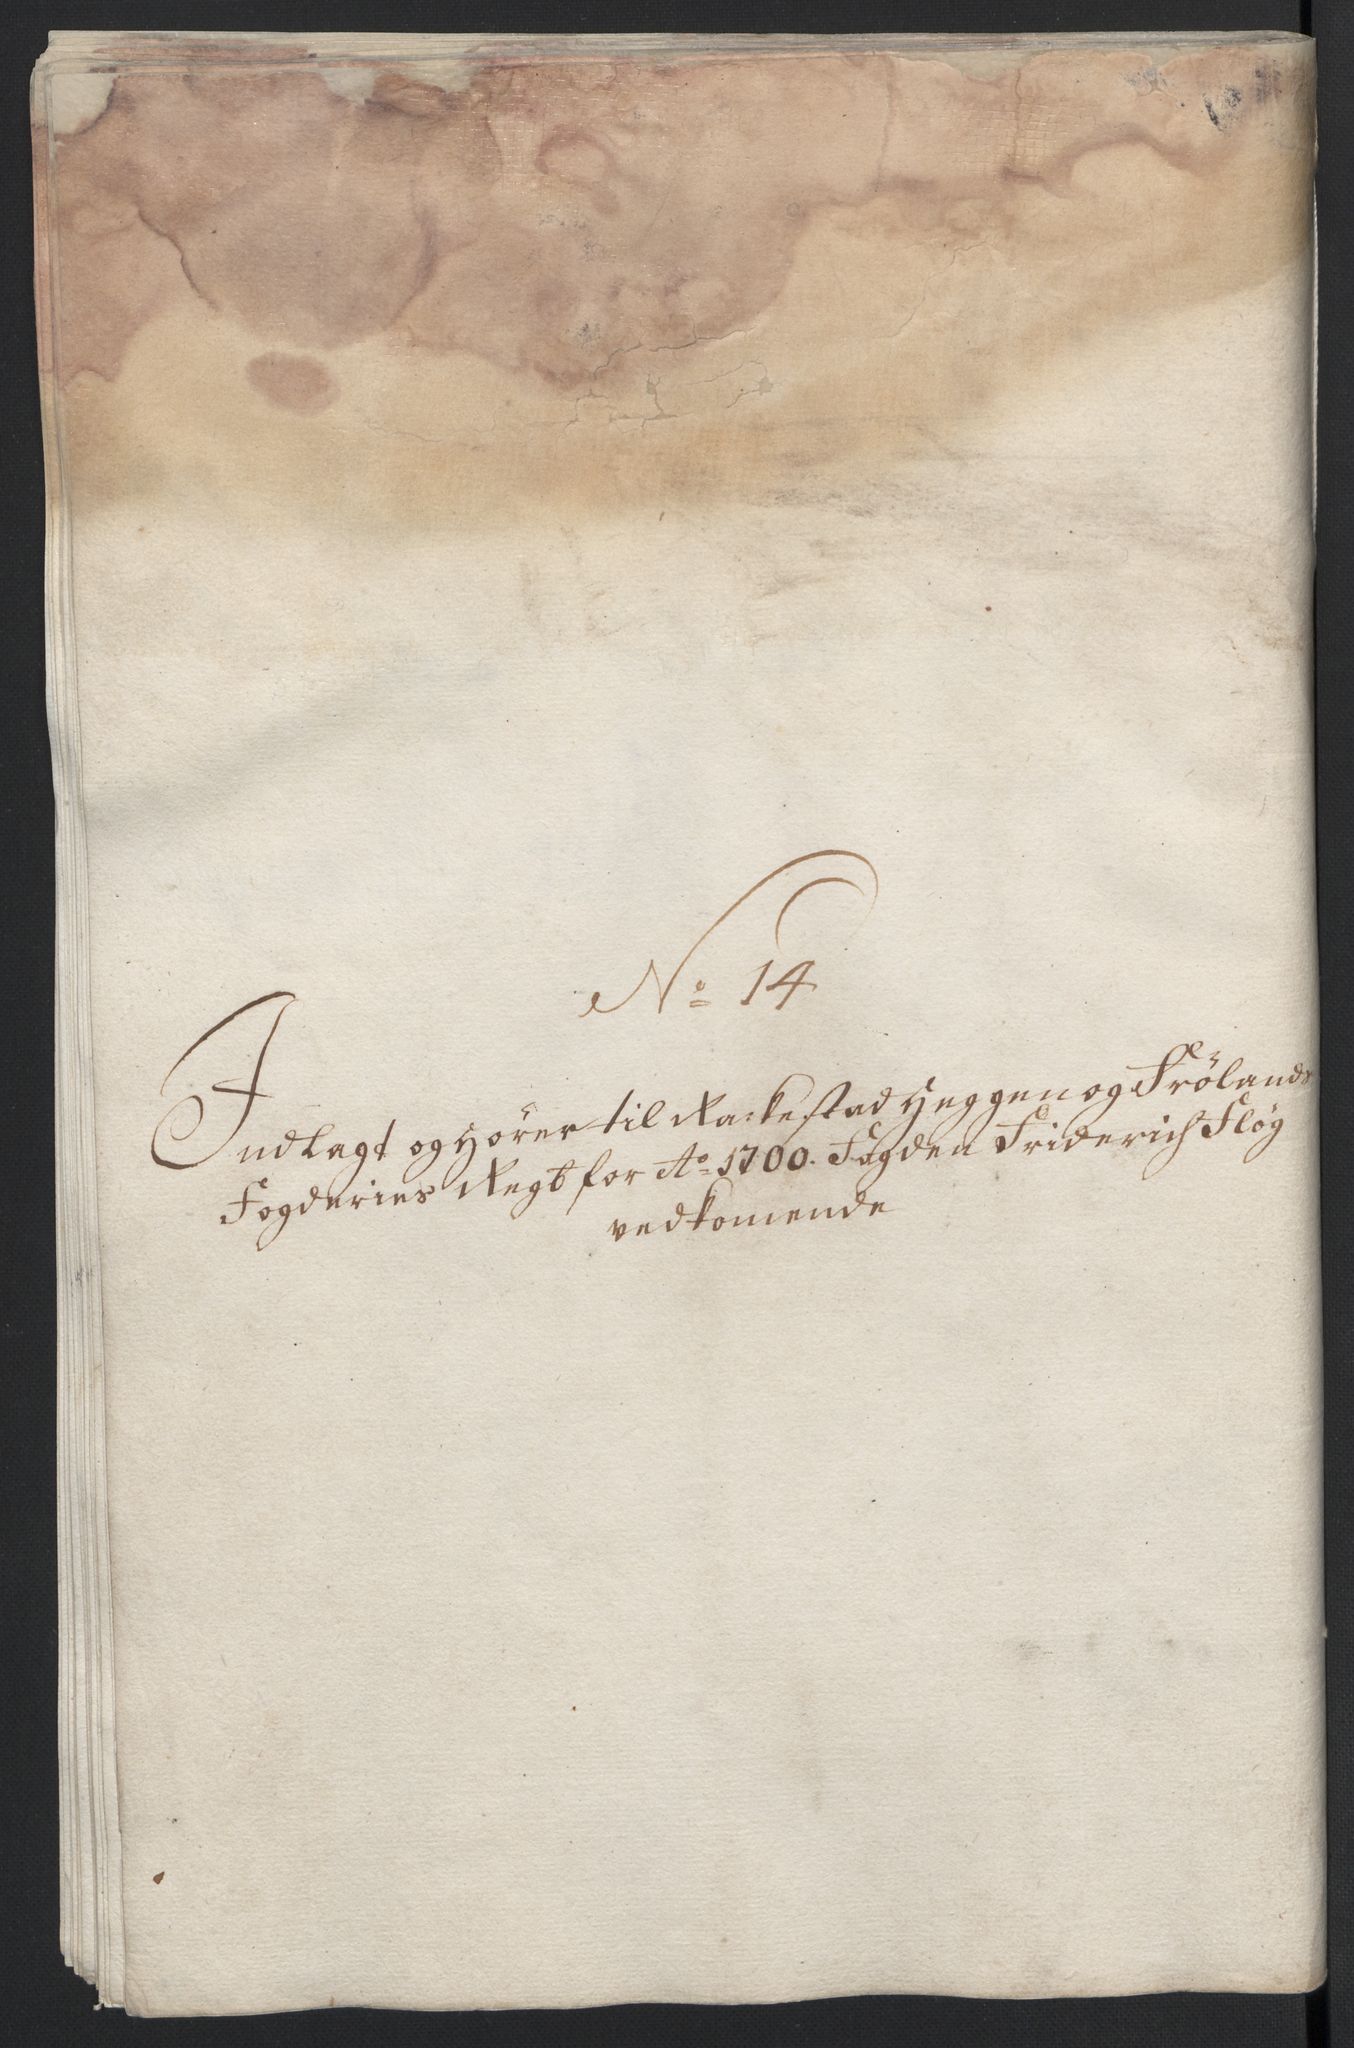 No 14
Indlagt og hører til Rackestad Heggen og Frølands
Fogderies Regb for Ao 1700. Fogden Friderich Fløg
vedkomende